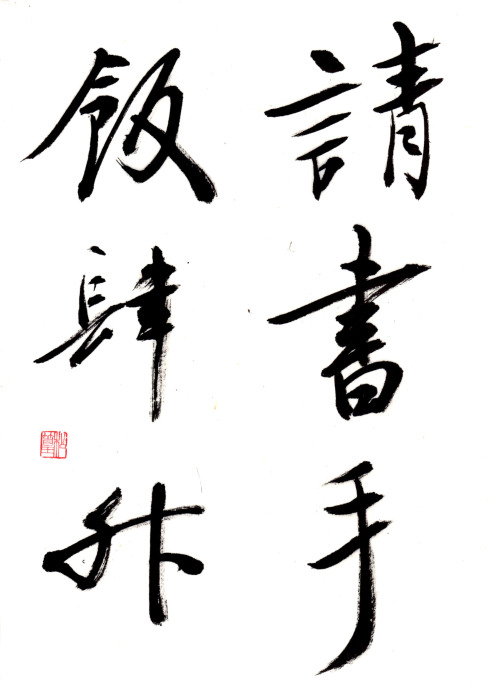 請書手
飯肆外